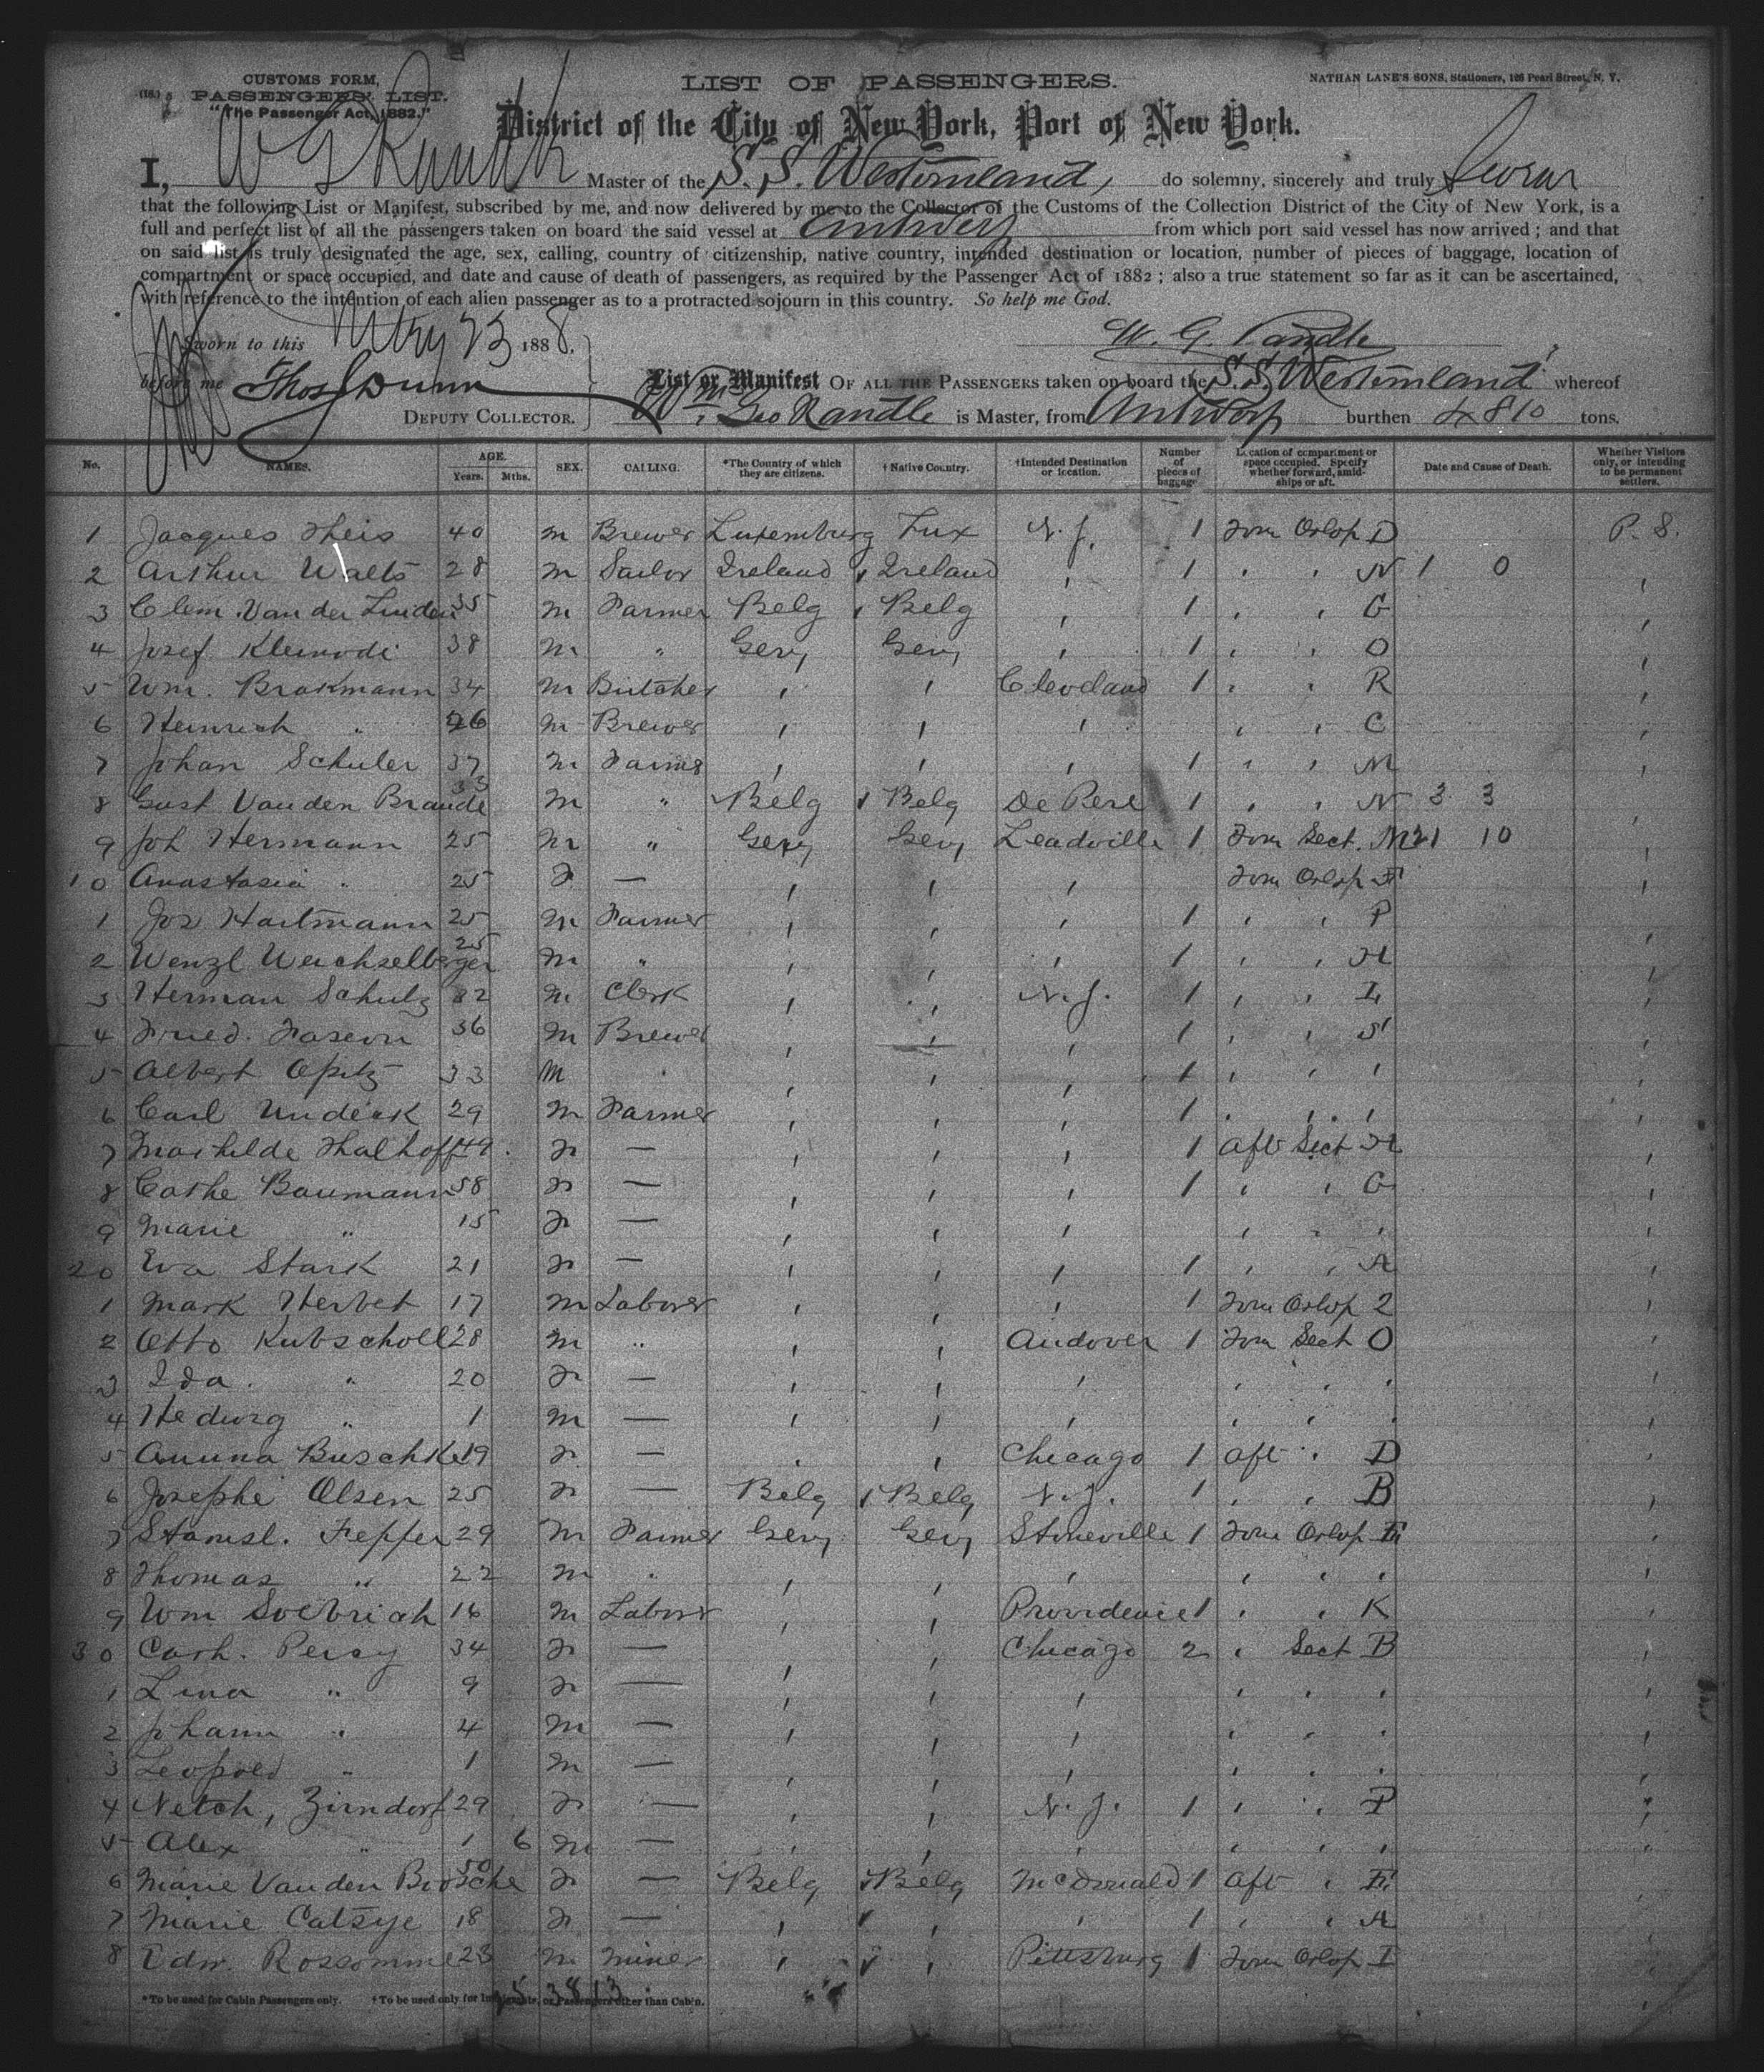 CUSTOMS FORM,
PASSENGERS' LIST.
"The Passenger Act, 1882."
LIST OF PASSENGERS.
NATHAN LANE'S SONS, Stationers, 126 Pearl Street, N. Y.
District of the City of New York, Port of New York.
I, W G Randle Master of the S. S. Westernland, do solemny, sincerely and truly Swear
that the following List or Manifest, subscribed by me, and now delivered by me to the Collector of the Customs of the Collection District of the City of New York, is a
full and perfect list of all the passengers taken on board the said vessel at Antwerp from which port said vessel has now arrived ; and that
on said list is truly designated the age, sex, calling, country of citizenship, native country, intended destination or location, number of pieces of baggage, location of
compartment or space occupied, and date and cause of death of passengers, as required by the Passenger Act of 1882 ; also a true statement so far as it can be ascertained,
with reference to the intention of each alien passenger as to a protracted sojourn in this country. So help me God.
Sworn to this May 23 1888. W. G. Randle
before me Thos Dunn
DEPUTY COLLECTOR.
List or Manifest OF ALL THE PASSENGERS taken on board the S. S. Westernland whereof
Wm Geo Randle is Master, from Antwerp burthen 4810 tons.
No. NAMES. AGE. Years. Mths. SEX. CALLING. *The Country of which they are citizens. †Native Country. †Intended Destination or location. Number of pieces of baggage Location of compartment or space occupied. Specify whether forward, amidships or aft. Date and Cause of Death. Whether Visitors only, or intending to be permanent settlers.
1 Jacques Theis 40 m Brewer Luxemburg Lux N. J. 1 Forw Orlop D P. S.
2 Arthur Walts 28 m Sailor Ireland Ireland , 1 , , N 1 0 ,
3 Clem. Van der Linden 35 m Farmer Belg Belg , 1 , , G ,
4 Josef Klemodi 38 m " Gery Gery , 1 , , O ,
5 Wm. Brokmann 34 m Butcher , , Cleveland 1 , , R ,
6 Heinrich " 26 m Brewer , , , , , C ,
7 Johan Schuler 37 m Farmer , , , 1 , , M ,
8 Gust Van den Brande 33 m " Belg Belg De Pere 1 , , N 3 3 ,
9 Joh Hermann 25 m " Gery Gery Leadville 1 Forw Sect. M 21 10 ,
10 Anastasia " 25 F — , , , Forw Orlop F ,
1 Jos Hartmann 25 m Farmer , , , 1 , , P ,
2 Wenzl Weichselberger 25 m " , , , 1 , , H ,
3 Herman Schulz 32 m Clerk , , N. J. 1 , , L ,
4 Fried. Faseon 36 m Brewer , , , 1 , , S ,
5 Albert Opitz 33 m , , , , 1 , , , ,
6 Carl Undeak 29 m Farmer , , , 1 , , , ,
7 Mathilde Thalhoff 49 F — , , , 1 aft Sect H ,
8 Cathe Baumann 58 F — , , , 1 , , G ,
9 Marie " 15 F — , , , , , , ,
20 Eva Stark 21 F — , , , 1 , , A ,
1 Mark Herbet 17 m Laborer , , , 1 Forw Orlop 2 ,
2 Otto Kubscholl 28 m " , , Andover 1 Forw Sect O ,
3 Ida " 20 F — , , , , , , ,
4 Hedwig " 1 m — , , , , , , ,
5 Anna Buschke 19 F — , , Chicago 1 aft , D ,
6 Josephe Olsen 25 F — Belg Belg N. J. 1 , , B ,
7 Stanisl. Fepper 29 m Farmer Gery Gery Stoneville 1 Forw Orlop E ,
8 Thomas " 22 m , , , , , , , ,
9 Wm Soebriah 16 m Laborer , , Providence 1 , , K ,
30 Cath. Percy 34 F — , , Chicago 2 , Sect B ,
1 Lina " 9 F — , , , , , , ,
2 Johann " 4 m — , , , , , , ,
3 Leopold " 1 m — , , , , , , ,
4 Netch, Zirndorf 29 F — , , N. J. 1 , , P ,
5 Alex " 1 6 m — , , , , , , ,
6 Marie Van den Brosche 50 F — Belg Belg McDonald 1 aft , E ,
7 Marie Catsye 18 F — , , , 1 , , A ,
8 Edw. Rossomme 23 m miner , , Pittsburg 1 Forw Orlop I ,
*To be used for Cabin Passengers only. †To be used only for Immigrants, or Passengers other than Cabin.